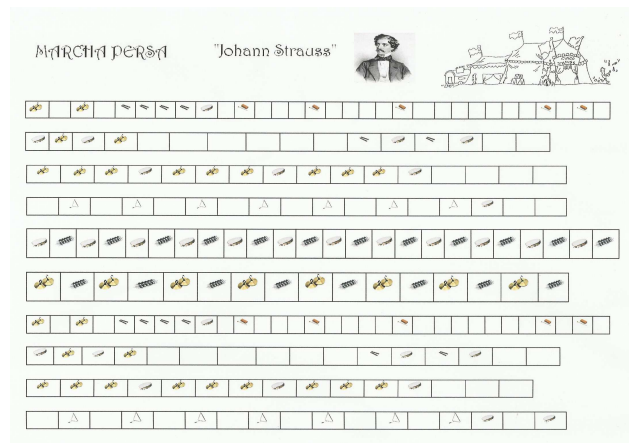 MARCHA PERSA "Johann Strauss"